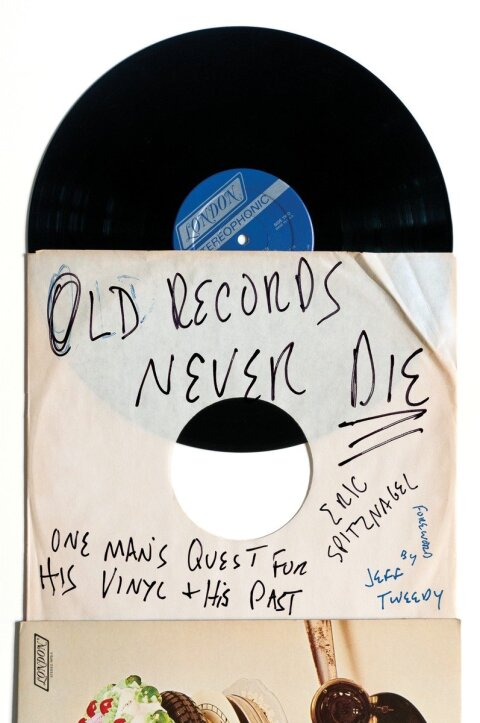 LONDON
STEREOPHONIC
OLD RECORDS
NEVER DIE
ERIC
SPITZNAGEL
FOREWORD
BY
JEFF
TWEEDY
ONE MAN'S QUEST FOR
HIS VINYL + HIS PAST
LONDON